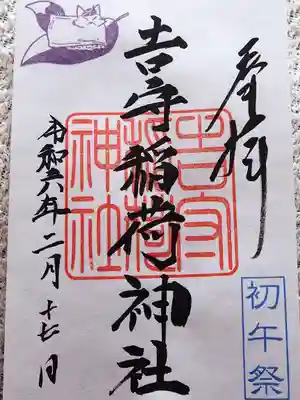 奉拝
初午祭
吉守稲荷神社
吉守
稲荷
神社
令和六年二月十七日